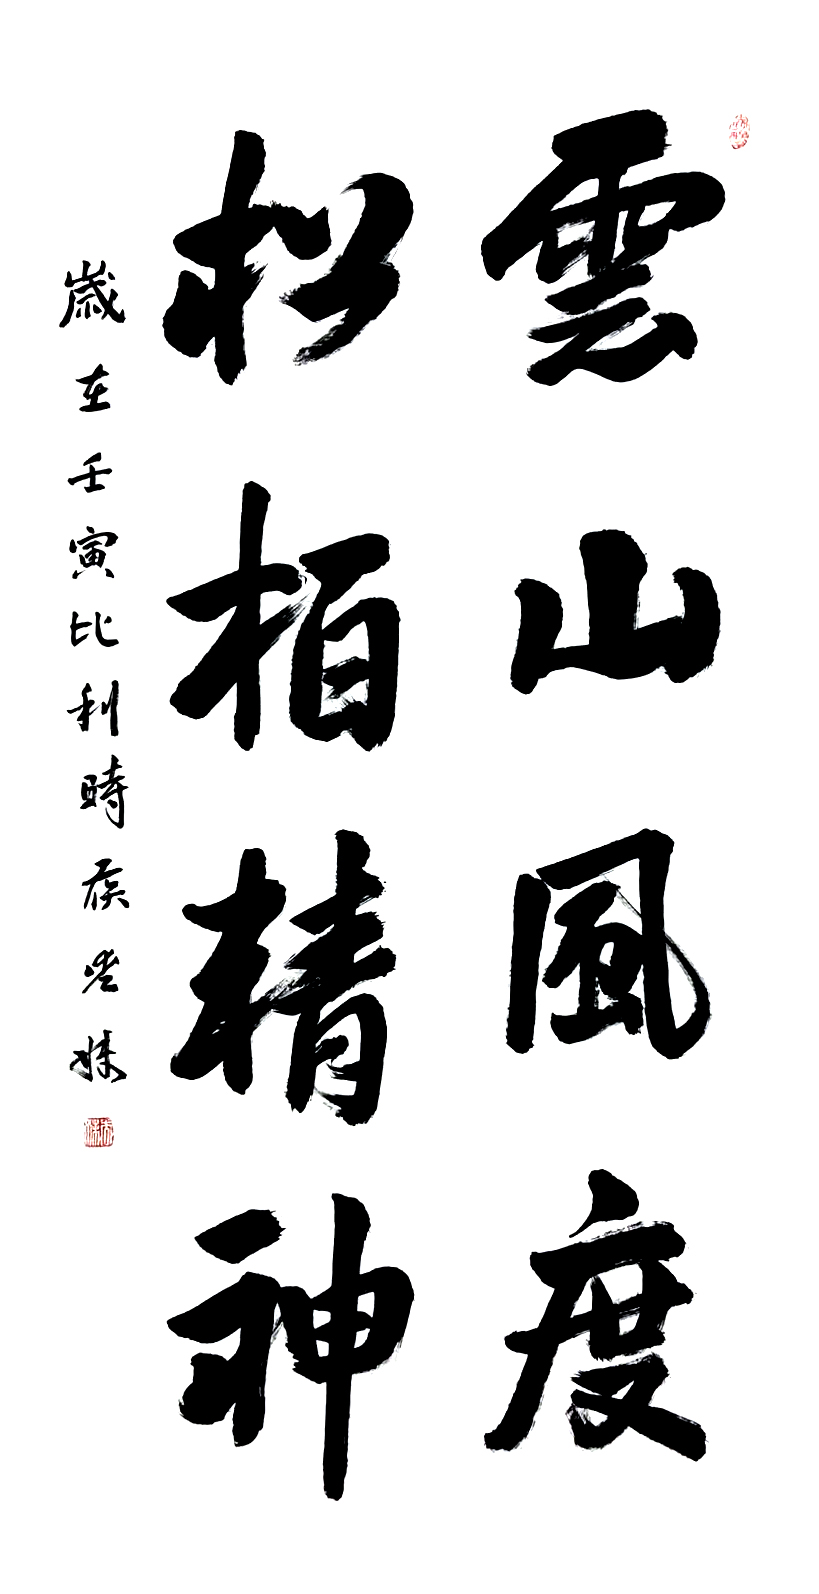 雲山風度
松柏精神
歲在壬寅比利時侯